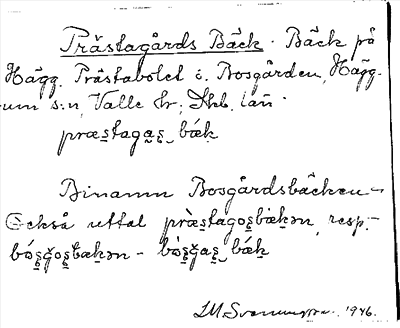 Prästagårds Bäck. Bäck på
Hägg. Prästabolet i. Bosgården, Hägg-
um s:n, Valle hr; Skb. län.
præs̱taga̱s̱ ̮ bǽḵ
Binamn Bosgårdsbäcken –
Också uttal præ̀s̱tagos̱bæ̀ḵən, resp.
bós̱ǥos̱bæḵən – bò̱s̱ǥas̱ ̮ bǽḵ
1946.